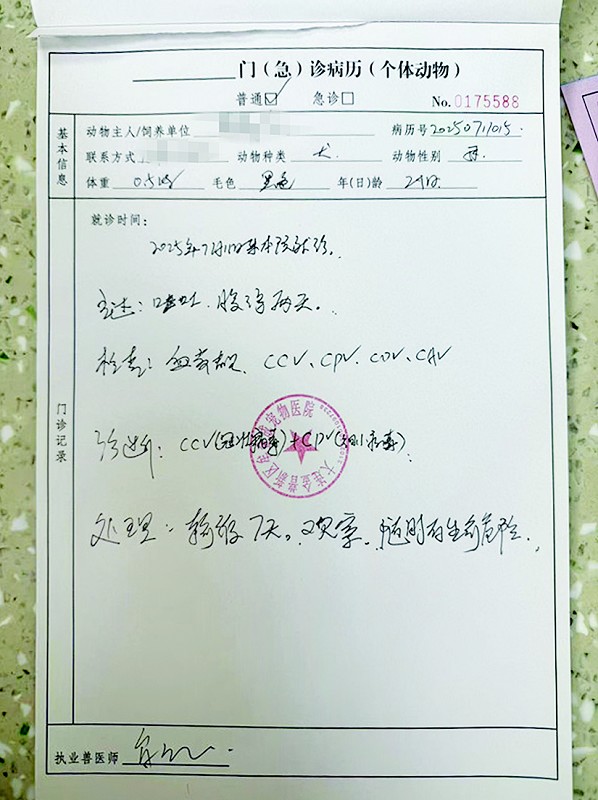 门（急）诊病历（个体动物）
普通☑ 急诊□ No.0175588
基本信息
动物主人/饲养单位 病历号20250711015
联系方式 动物种类 犬 动物性别
体重 0.5kg 毛色 黑色 年(日)龄
门诊记录
就诊时间：
2025年7月11日来本院就诊.
主述：呕吐.腹泻两天.
检查：血常规. CCV、CPV.CDV、CAV
诊断：CCV(冠状病毒)+CPV(细小病毒)
处理：输液7天。观察。随时有生命危险.
宠物医院
大连金普新区
执业兽医师